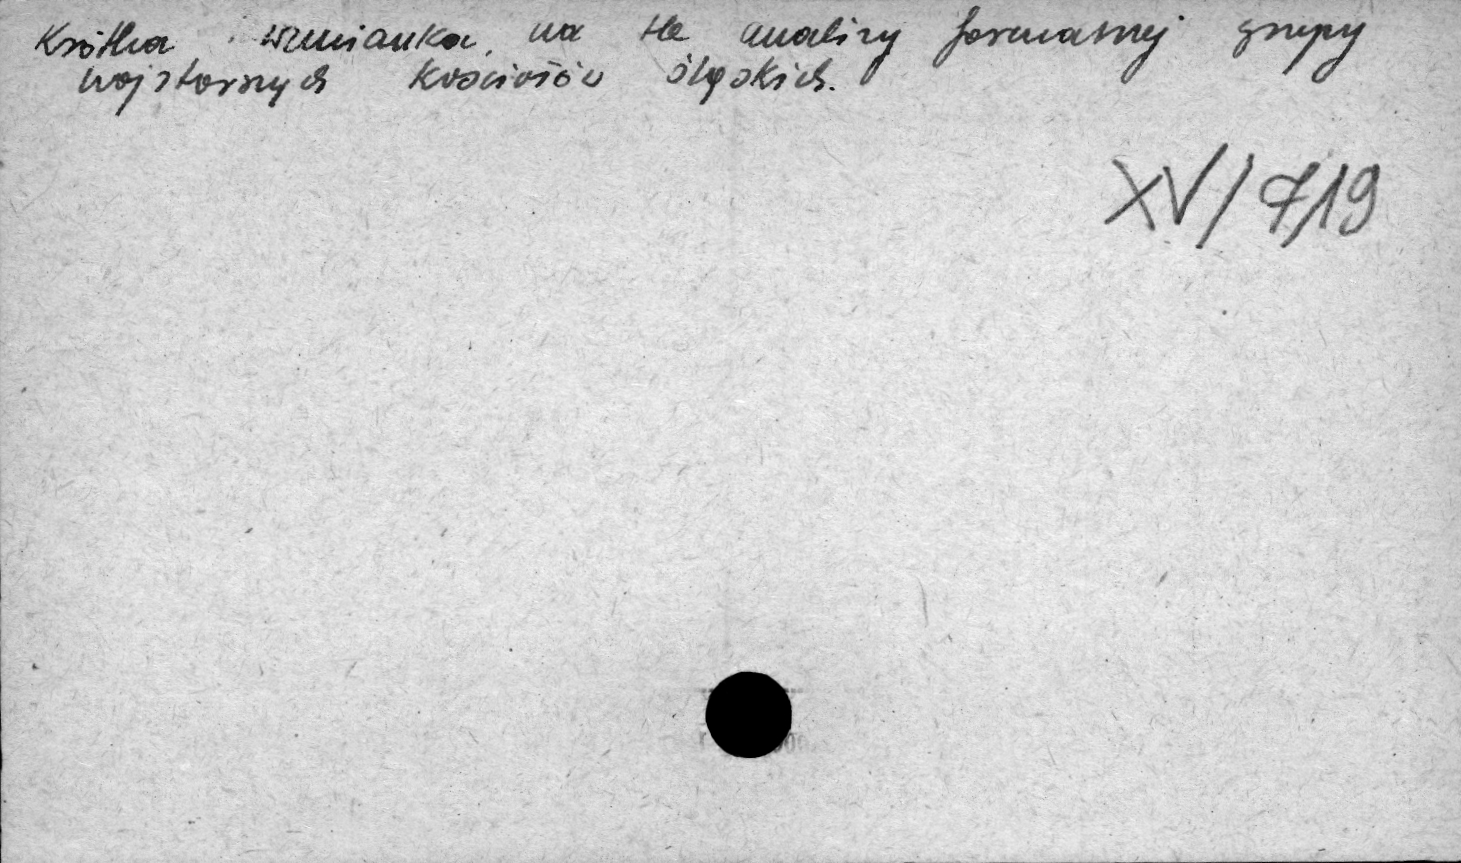 Krótka wzmianka, na tle analizy formalnej grupy
wojstarszych kościołów śląskich.
XV/719